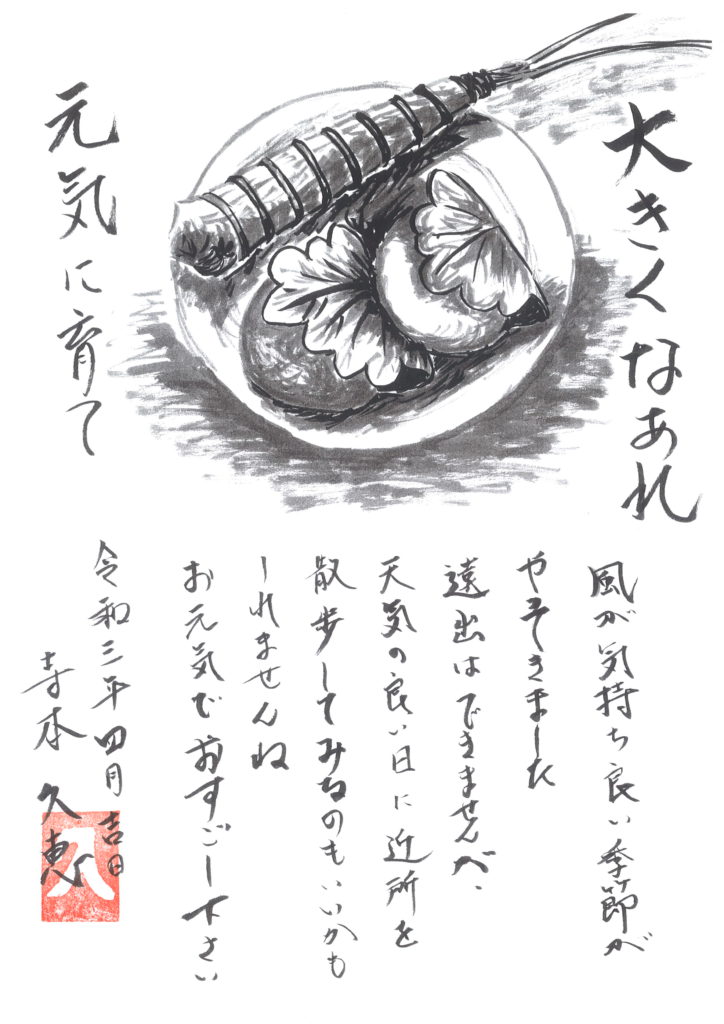 大きくなあれ
元気に育て
風が気持ち良い季節が
やってきました
遠出はできませんが、
天気の良い日に近所を
散歩してみるのもいいかも
しれませんね
お元気でお過ごし下さい
令和三年四月吉日
寺本久恵
久